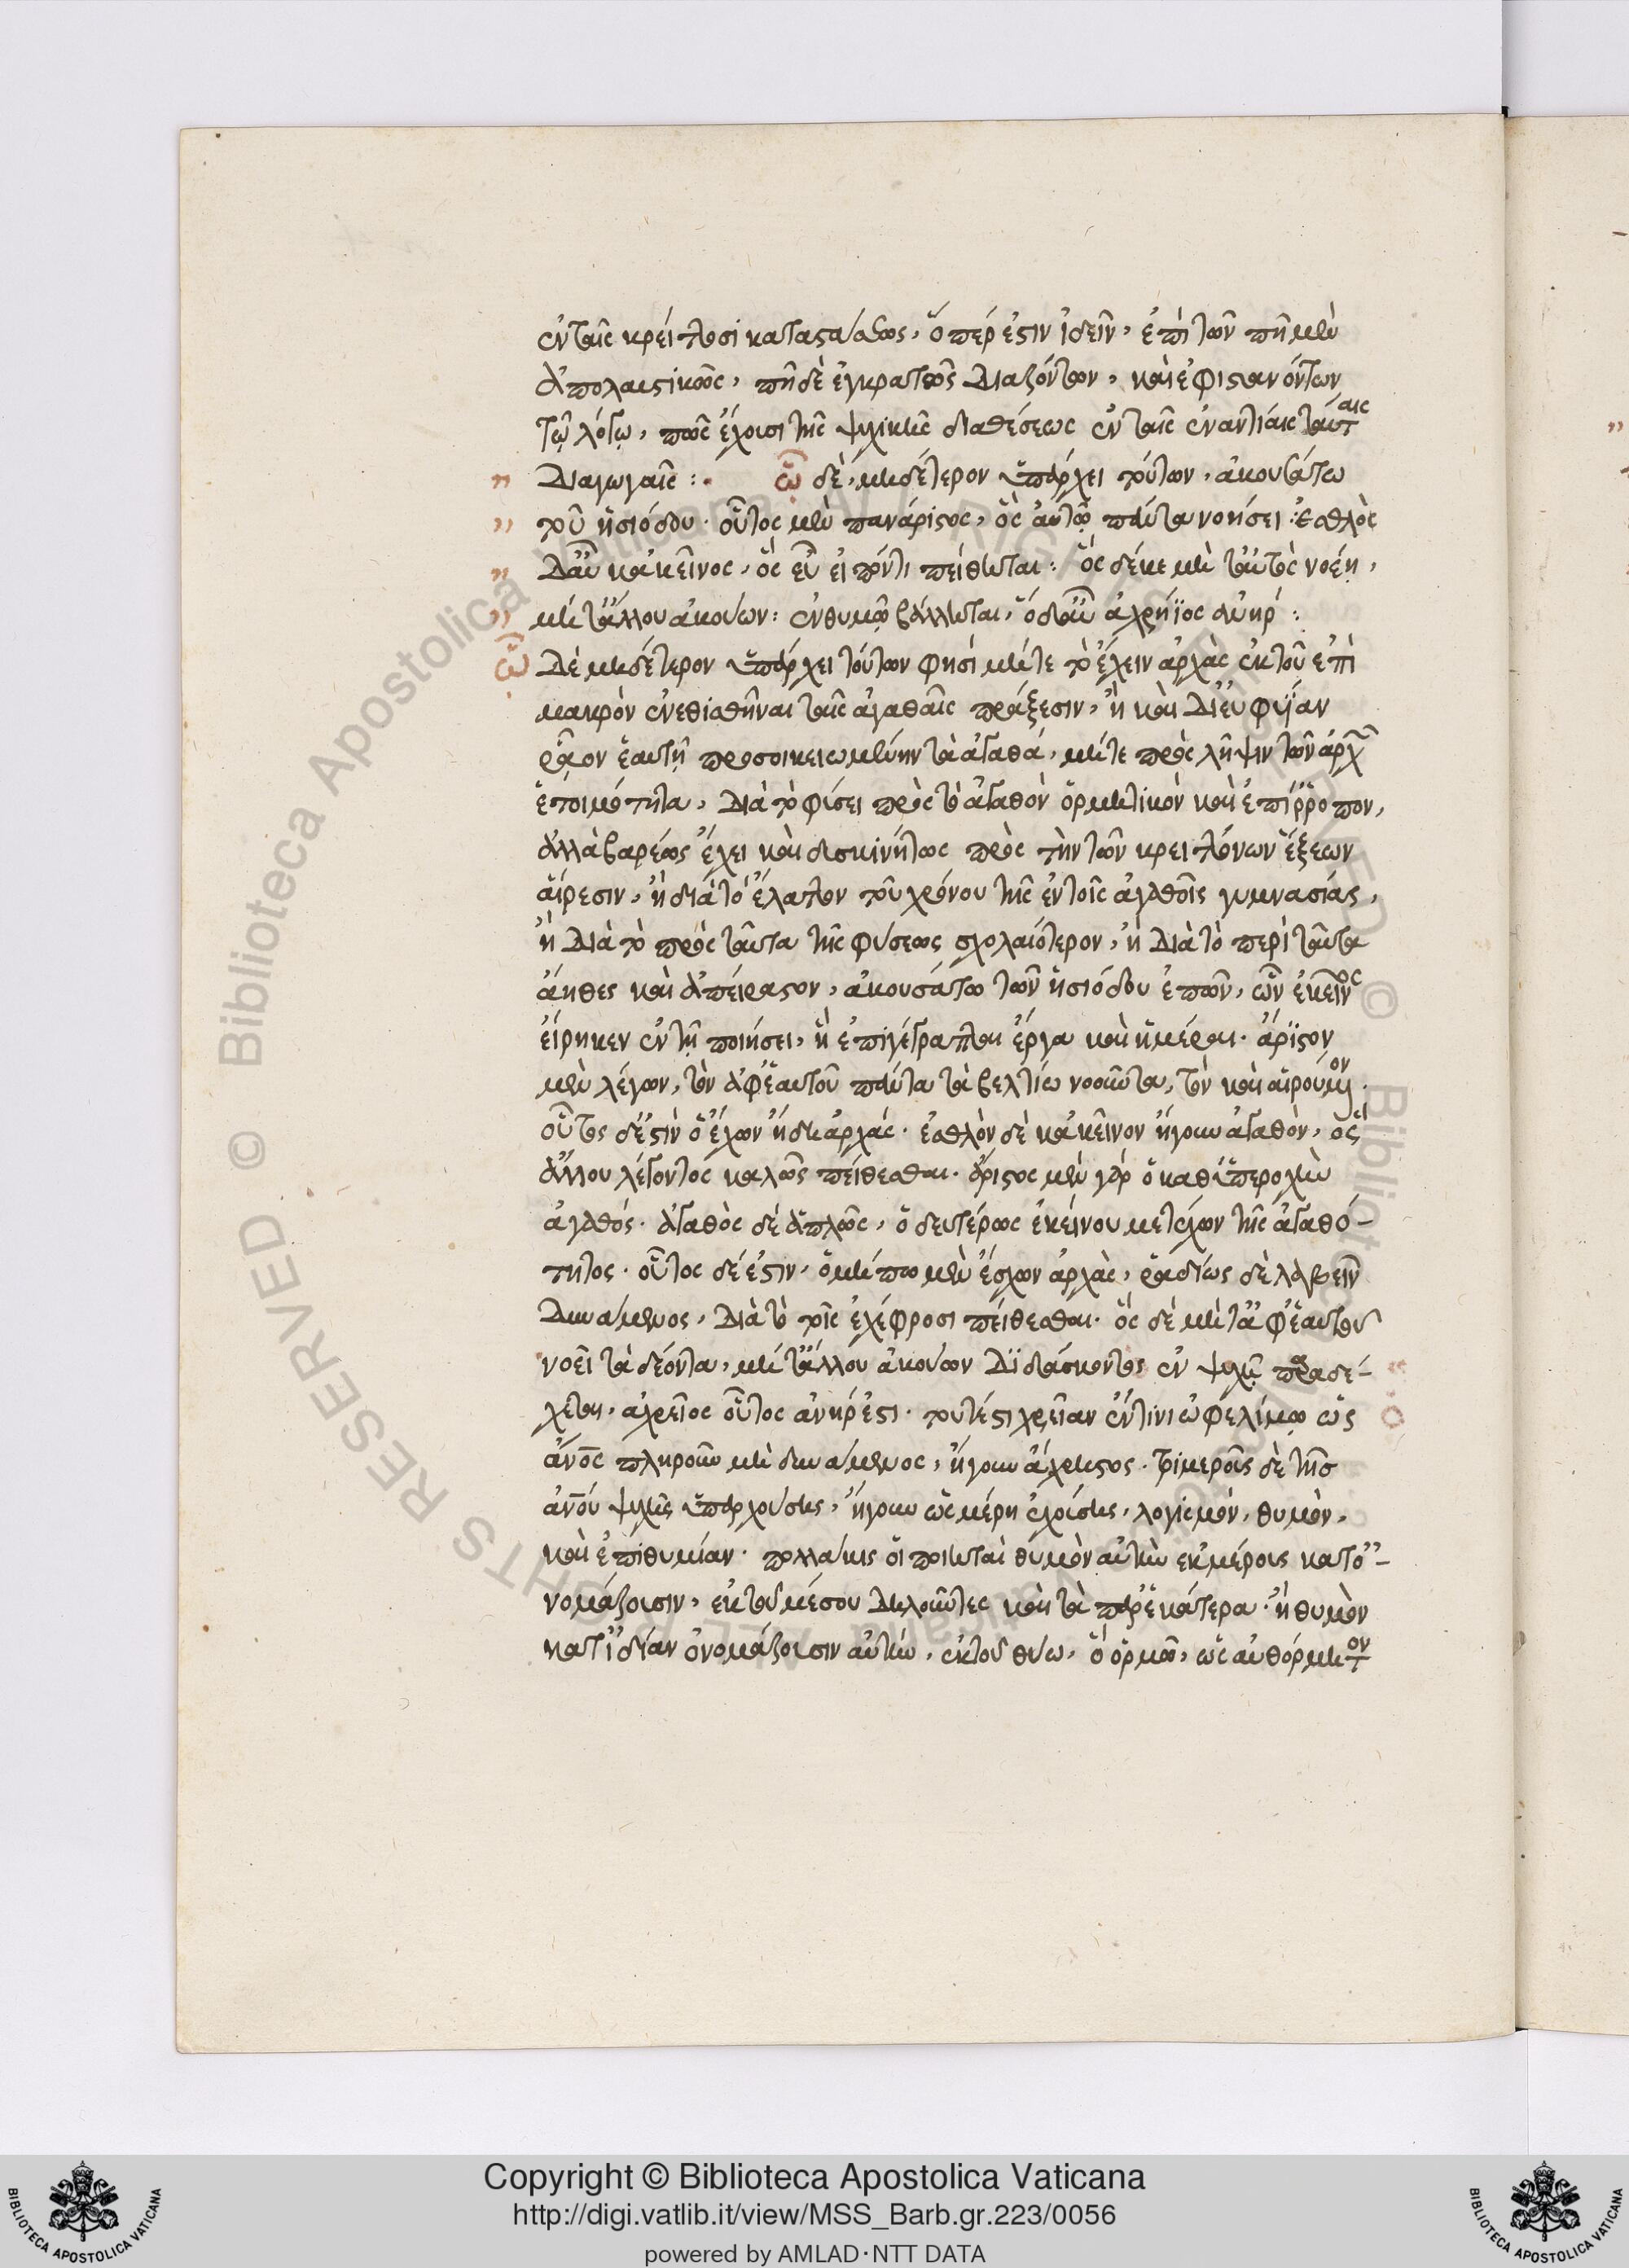 ἐν ταῖς κρείττοσι καταστάσεως, ὅπέρ ἐστιν ἰδεῖν, ἐπὶ τῶν πῆ μὲν
ἀπολαυστικῶς, πῆ δὲ ἐγκρατῶς διαζόντων, καὶ ἐφιστανόντων
τῷ λόγῳ, πῶς ἔχουσι τῆς ψυχικῆς διαθέσεως ἐν ταῖς ἐναντίαις ταύταις
διαγωγαῖς :. ᾧ δὲ, μηδέτερον ὑπάρχει τούτων, ἀκουσάτω
τοῦ ἡσιόδου. οὗτος μὲν πανάριστος, ὃς αὐτῷ πάντα νοήσει : ἐσθλὸς
δαὖ κἀκεῖνος, ὃς εὖ εἰπόντι πείθηται : ὃς δέκε μὴ ταὐτὸς νοέῃ,
μήτ' ἄλλου ἀκούων : ἐν θυμῷ βάλληται, ὅδ' αὖ ἀχρήϊος ἀνήρ :
ᾧ δὲ μηδέτερον ὑπάρχει τούτων φησί μήτε τὸ ἔχειν ἀρχὰς ἐκ τοῦ ἐπὶ
μακρὸν ἐνεθισθῆναι ταῖς ἀγαθαῖς πράξεσιν, ἢ καὶ δι' εὐφυΐαν
ῥᾷον ἑαυτῇ προσοικειωμένην τὰ ἀγαθά, μήτε πρὸς λῆψιν τῶν ἀρχῶν
ἑτοιμότητα, διὰ τὸ φύσει πρὸς τὸ ἀγαθὸν ὁρμητικὸν καὶ ἐπίρροπον,
ἀλλὰ βαρέως ἔχει καὶ δυσκινήτως πρὸς τὴν τῶν κρειττόνων ἕξεων
αἵρεσιν, ἢ διὰ τὸ ἔλαττον τοῦ χρόνου τῆς ἐν τοῖς ἀγαθοῖς γυμνασίας,
ἢ διὰ τὸ πρὸς ταῦτα τῆς φύσεως σχολαιότερον, ἢ διὰ τὸ περὶ ταῦτα
ἄηθες καὶ ἀπείραστον, ἀκουσάτω τῶν ἡσιόδου ἐπῶν, ὧν ἐκεῖνος
εἴρηκεν ἐν τῇ ποιήσει, ἣ ἐπιγέγραπται ἔργα καὶ ἡμέραι. ἄριστον
μὲν λέγων, τὸν ἀφ' ἑαυτοῦ πάντα τὰ βελτίω νοοῦντα, τὸν καὶ αἱρούμενον.
οὗτος δέ ἐστὶν ὁ ἔχων ἤδη ἀρχάς. ἐσθλὸν δὲ κἀκεῖνον ἤγουν ἀγαθὸν, ὅστις
ἄλλου λέγοντος καλῶς πείθεσθαι. ἄριστος μὲν γὰρ ὁ καθ' ὑπεροχὴν
ἀγαθός. ἀγαθὸς δὲ ἁπλῶς, ὁ δευτέρως ἐκείνου μετέχων τῆς ἀγαθό-
τητος. οὗτος δέ ἐστιν, ὁ μήπω μὲν ἔσχων ἀρχὰς, ῥαδίως δὲ λαβεῖν
δυνάμενος, διὰ τὸ τοῖς ἐχέφροσι πείθεσθαι. ὃς δὲ μήτ' ἀφ' ἑαυτοῦ
νοεῖ τὰ δέοντα, μήτ' ἄλλου ἀκούων διδάσκοντος ἐν ψυχῇ παραδέ-
χεται, ἀχρεῖος οὗτος ἀνήρ ἐστι. τουτέστι χρείαν ἔντινι ὠφελίμῳ ὡς
ἄνος πληροῦν μὴ δυνάμενος, ἤγουν ἄχρηστος. τριμεροῦς δὲ τῆς
ἀνου ψυχῆς ὑπαρχούσης, ἤγουν ὡς μέρη ἐχούσης, λογισμόν, θυμὸν,
καὶ ἐπιθυμίαν. πολλάκις οἱ ποιηταὶ θυμὸν αὐτὴν ἐκ μέρους κατο-
νομάζουσιν, ἐκ τοῦ μέσου δηλοῦντες καὶ τὰ παρ' ἑκάτερα. ἢ θυμὸν
κατ' ἰδίαν ὀνομάζουσιν αὐτήν, ἐκ τοῦ θύω, ὃ ὁρμῶ, ὡς αὐθόρμητον
Copyright © Biblioteca Apostolica Vaticana
http://digi.vatlib.it/view/MSS_Barb.gr.223/0056
powered by AMLAD·NTT DATA